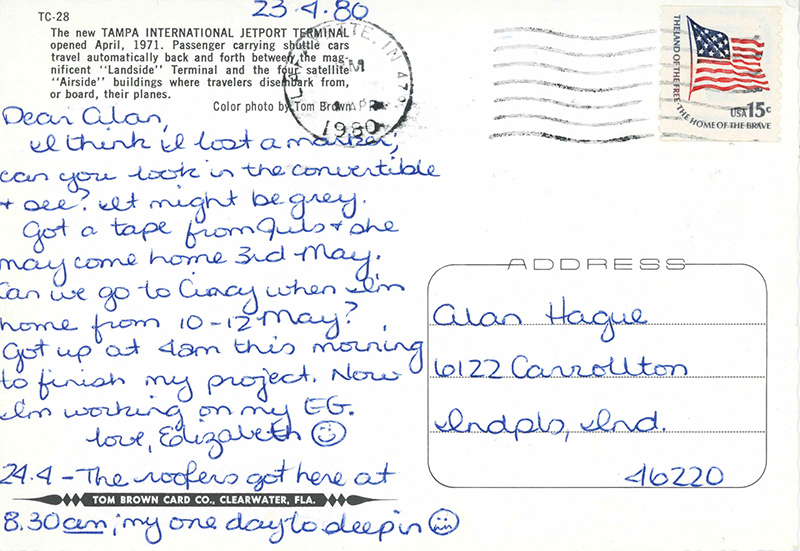 23.4.80
TC-28
The new TAMPA INTERNATIONAL JETPORT TERMINAL
opened April, 1971. Passenger carrying shuttle cars
travel automatically back and forth between the mag-
nificent "Landside" Terminal and the four satellite
"Airside" buildings where travelers disembark from,
or board, their planes.
Color photo by Tom Brown
Dear Alan,
I think I lost a marker,
can you look in the convertible
+ see? It might be grey.
Got a tape from Juls + she
may come home 3rd May.
Can we go to Cincy when I'm
home from 10-12 May?
Got up at 4am this morning
to finish my project. Now
I'm working on my EG.
love, Elizabeth ☺
24.4 - The roofers got here at
TOM BROWN CARD CO., CLEARWATER, FLA.
8.30am; my one day to sleep in ☺
IN 479
PM
APR
1980
THE LAND OF THE FREE · THE HOME OF THE BRAVE
USA 15c
ADDRESS
Alan Hague
6122 Carrollton
Indpls, Ind.
46220